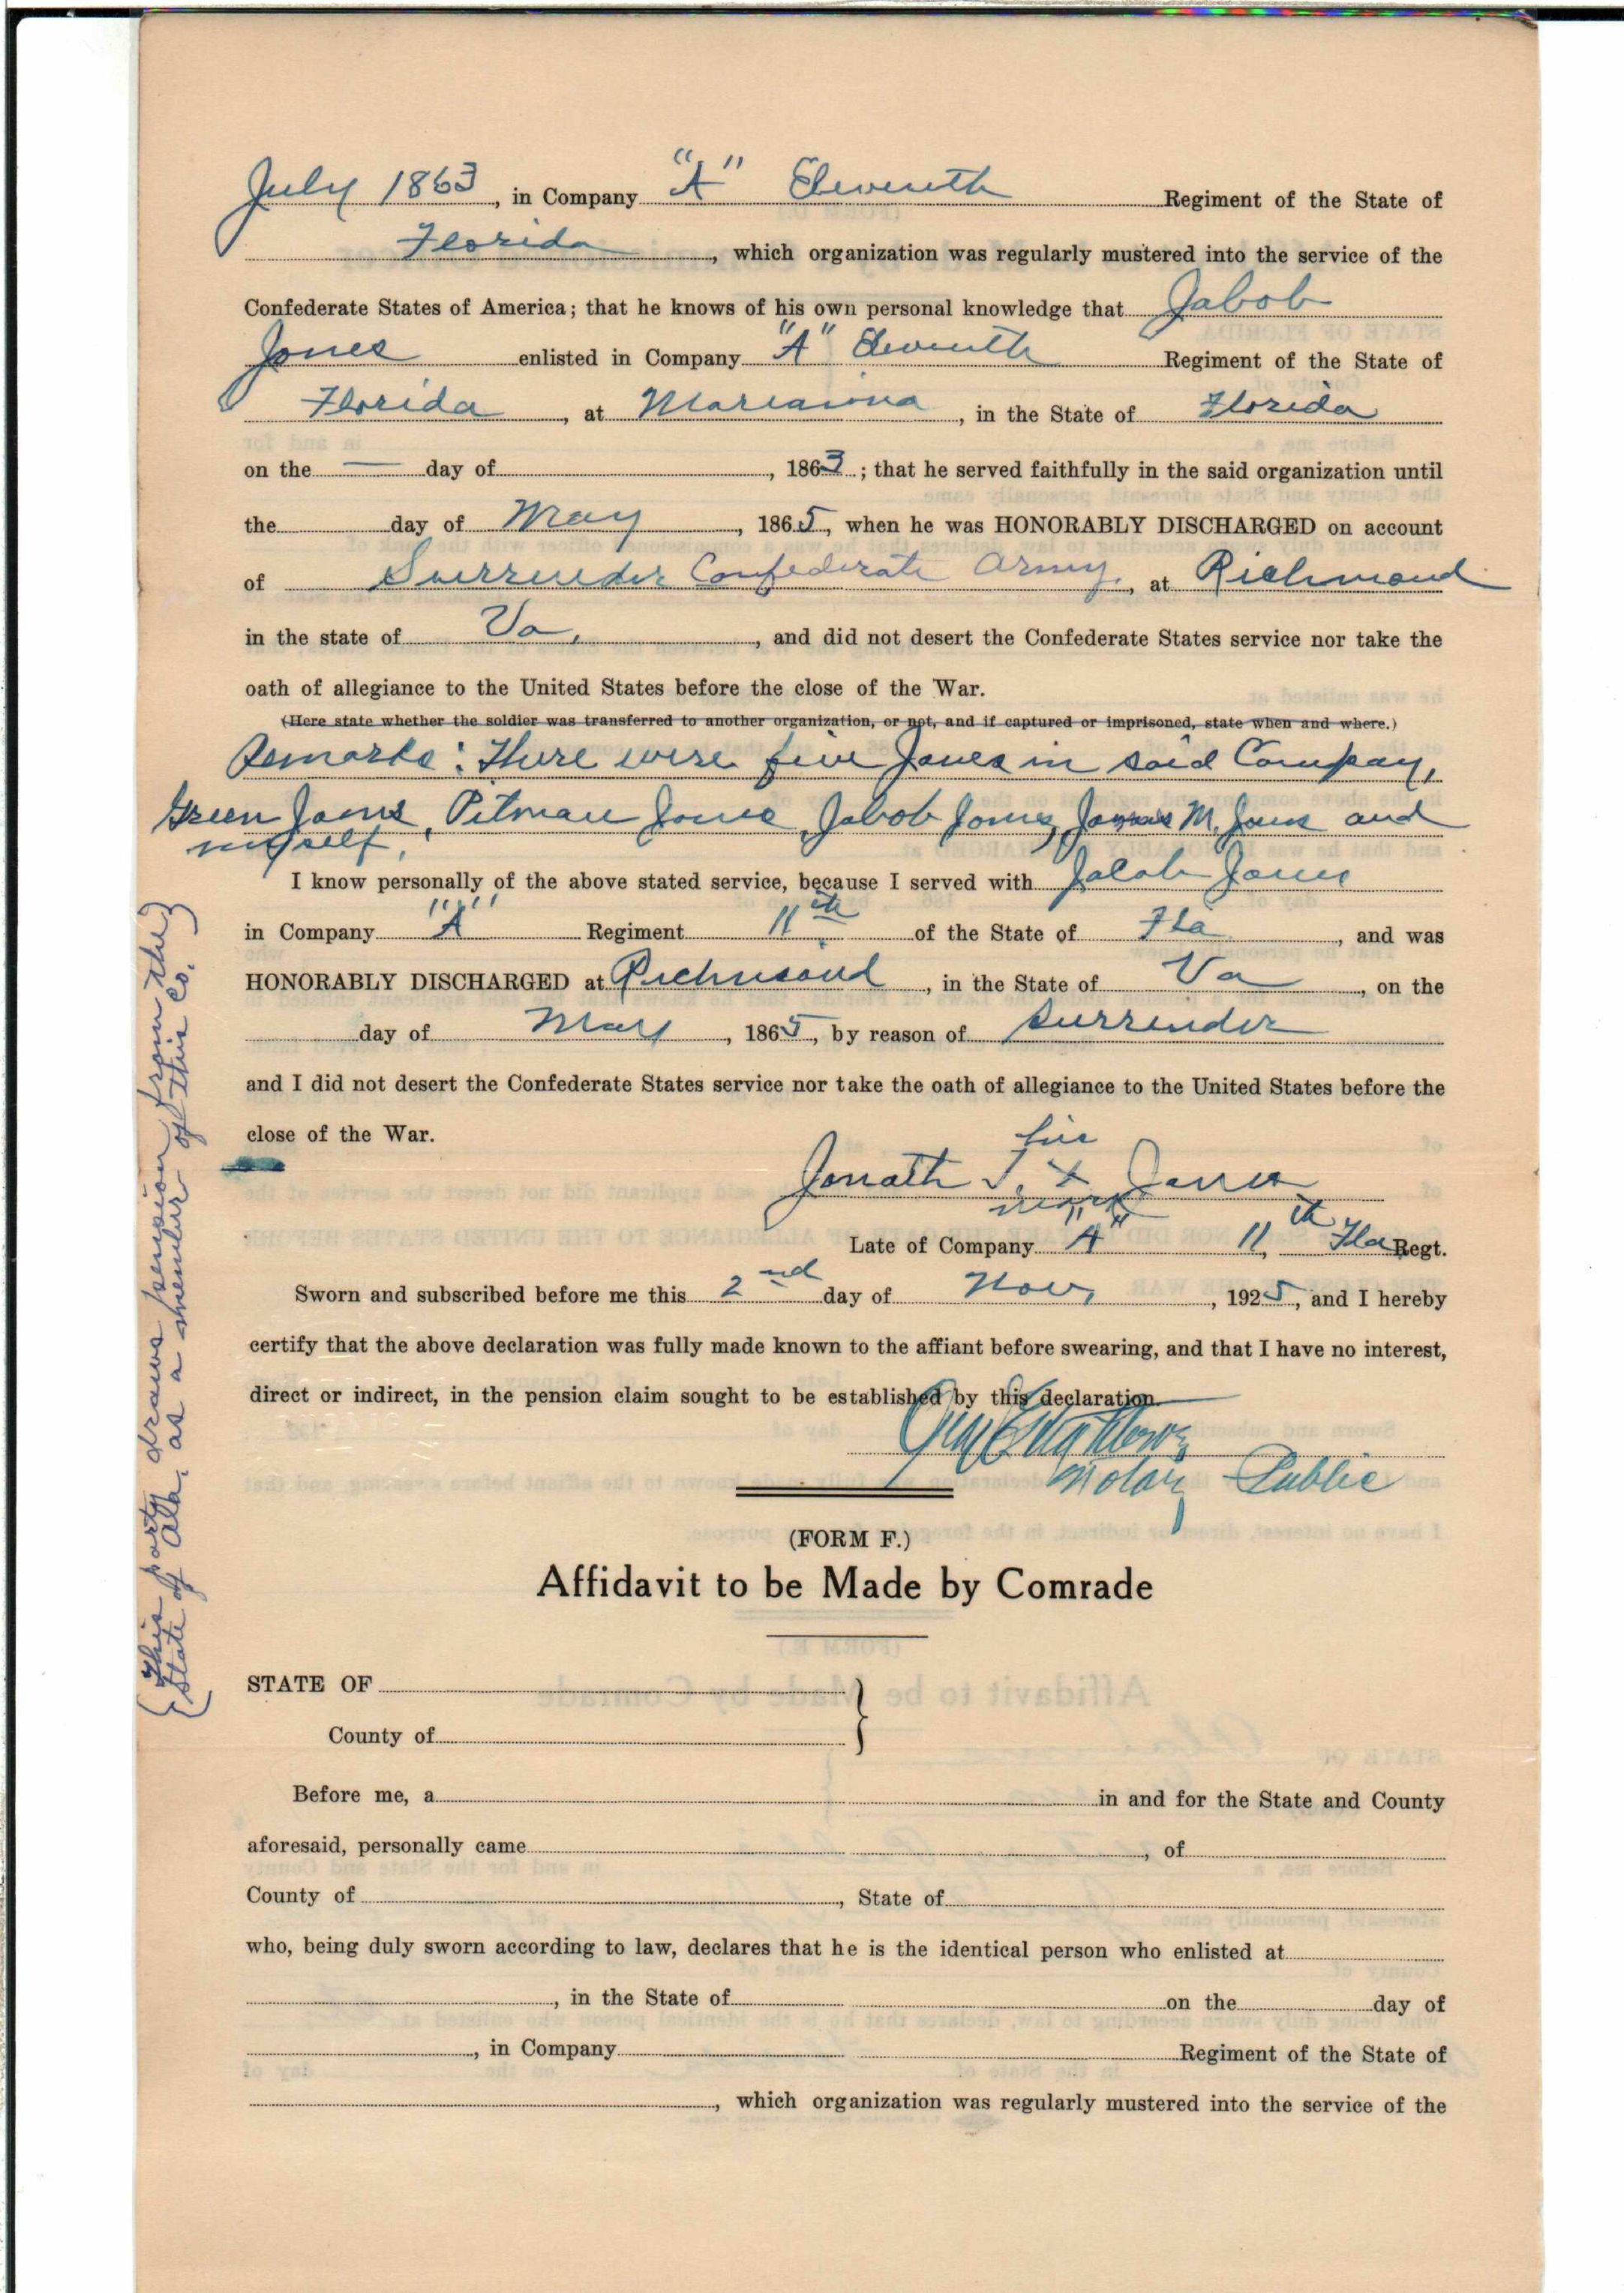 July 1863, in Company "A" Eleventh Regiment of the State of
Florida, which organization was regularly mustered into the service of the
Confederate States of America; that he knows of his own personal knowledge that Jabob
Jones enlisted in Company "A" Eleventh Regiment of the State of
Florida, at Marianna, in the State of Florida
on the — day of , 1863; that he served faithfully in the said organization until
the day of May, 1865, when he was HONORABLY DISCHARGED on account
of Surrender Confederate Army, at Richmond
in the state of Va., and did not desert the Confederate States service nor take the
oath of allegiance to the United States before the close of the War.
(Here state whether the soldier was transferred to another organization, or not, and if captured or imprisoned, state when and where.)
Remarks: There were five Jones in said Company,
Green Jones, Pitman Jones, Jabob Jones, James M. Jones and
myself.
I know personally of the above stated service, because I served with Jacob Jones
in Company "A" Regiment 11th of the State of Fla, and was
HONORABLY DISCHARGED at Richmond, in the State of Va, on the
day of May, 1865, by reason of Surrender
and I did not desert the Confederate States service nor take the oath of allegiance to the United States before the
close of the War.
his
Jonath J. x Jones
mark
Late of Company "A" 11th Fla Regt.
Sworn and subscribed before me this 2nd day of Nov, 1925, and I hereby
certify that the above declaration was fully made known to the affiant before swearing, and that I have no interest,
direct or indirect, in the pension claim sought to be established by this declaration.
Notary Public
(FORM F.)
Affidavit to be Made by Comrade
STATE OF
County of
Before me, a in and for the State and County
aforesaid, personally came , of
County of , State of
who, being duly sworn according to law, declares that he is the identical person who enlisted at
, in the State of on the day of
, in Company Regiment of the State of
, which organization was regularly mustered into the service of the
{This party draws pension from the}
{State of Ala, as a member of this Co.